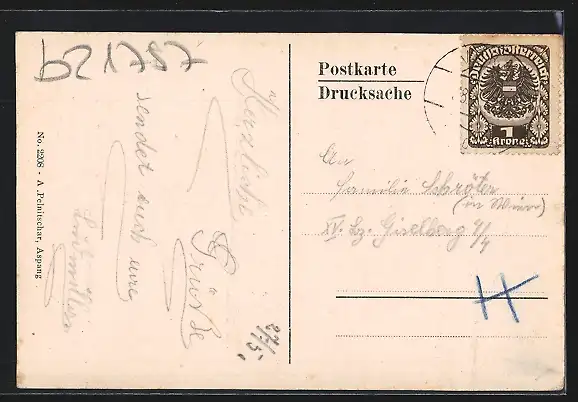 621787
Herzliche
Grüße
sendet euch eure
No. 2208 - A. Pelnitschar, Aspang
Postkarte
Drucksache
Deutschösterreich
1
Krone
An
Familie Schröter
(in Wien)
XV. Bz. Giselberg 4/4
H